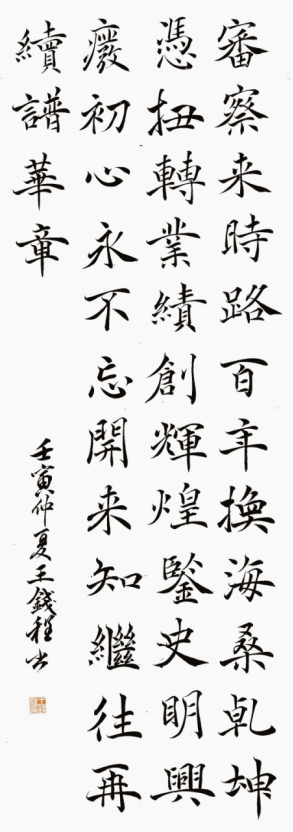 審察来時路百年換海桑乹坤
憑扭轉業績創輝煌鑒史明興
癈初心永不忘開来知繼往再
續譜華章
壬寅仲夏王錢程书